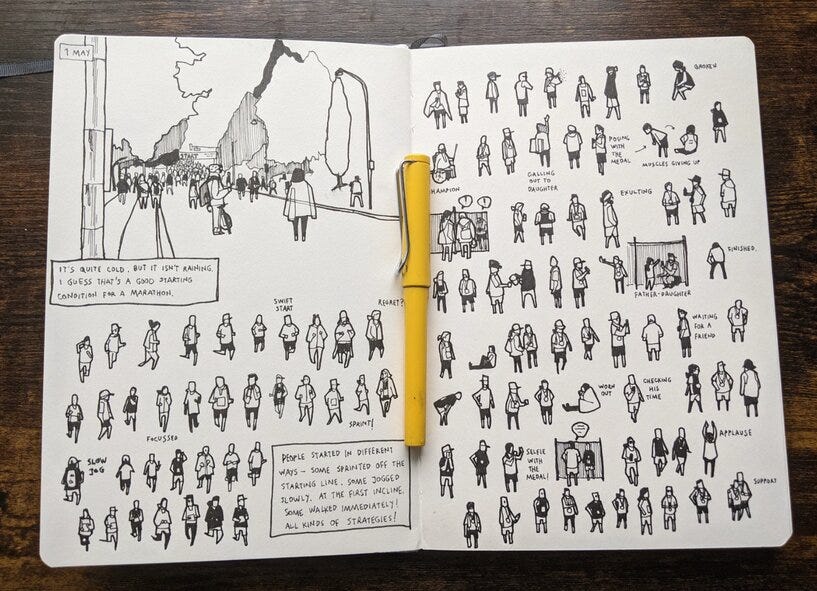 1 MAY
START
IT'S QUITE COLD, BUT IT ISN'T RAINING.
I GUESS THAT'S A GOOD STARTING
CONDITION FOR A MARATHON.
SWIFT
START
REGRET?
FOCUSSED
SPRINT!
SLOW
JOG
PEOPLE STARTED IN DIFFERENT
WAYS – SOME SPRINTED OFF THE
STARTING LINE. SOME JOGGED
SLOWLY. AT THE FIRST INCLINE,
SOME WALKED IMMEDIATELY!
ALL KINDS OF STRATEGIES!
BROKEN
POSING
WITH
THE
MEDAL
MUSCLES GIVING UP
CALLING
OUT TO
DAUGHTER
HAMPION
EXULTING
FINISHED.
FATHER-DAUGHTER
WAITING
FOR A
FRIEND
WORN
OUT
CHECKING
HIS
TIME
APPLAUSE
SELFIE
WITH
THE
MEDAL!
SUPPORT